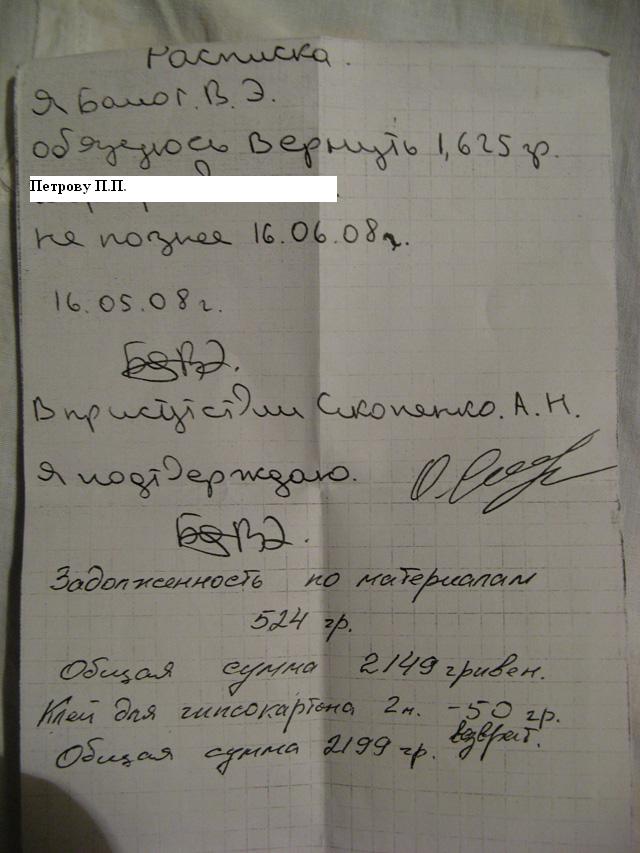 Расписка.
Я Балог. В. Э.
обязуюсь вернуть 1,625 гр.
Петрову П.П.
не познее 16.06.08г.
16.05.08г.
В присутствии А. Н.
Я подтверждаю.
Задолженность по материалам
524 гр.
Общая сумма 2149 гривен.
Клей для гипсокартона 2м. -50 гр.
возврат.
Общая сумма 2199 гр.